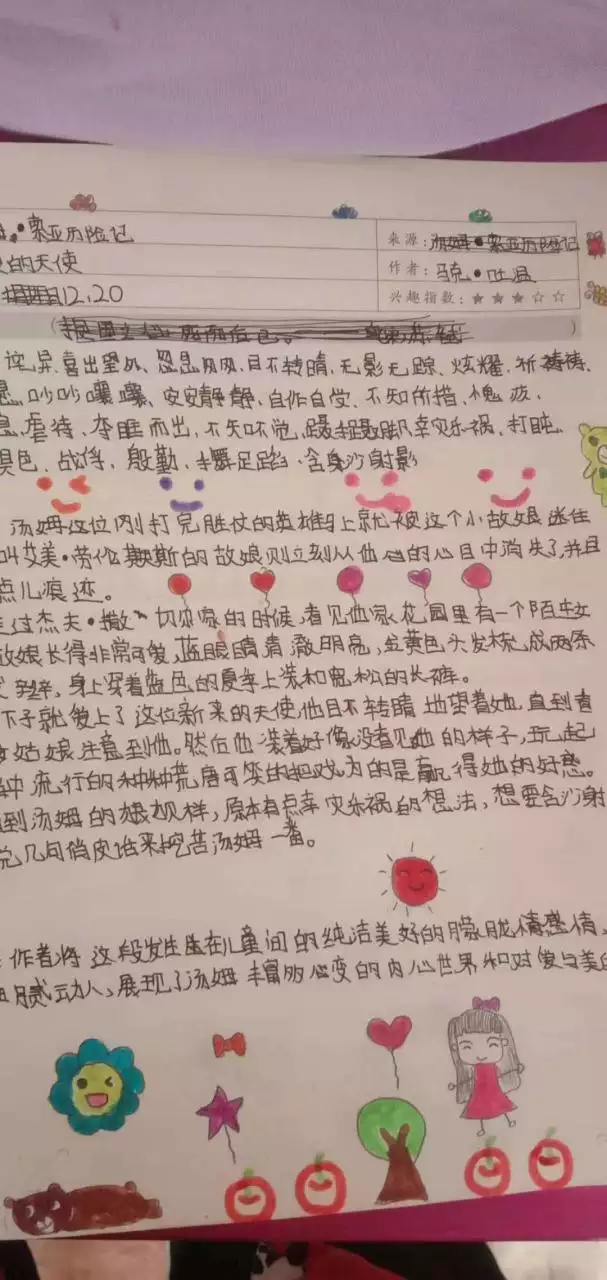 •索亚历险记
来源：汤姆•索亚历险记
的天使
作者：马克•吐温
12.20
兴趣指数：★★★☆☆
诧异、喜出望外、忽息风风、目不转睛、无影无踪、炫耀、祈祷祷、
吵吵嚷嚷、安安静静、自作自受、不知所措、愧疚、
虐待、夺眶而出、不知不觉、蹑手蹑脚、幸灾乐祸、打盹、
色、战俘、殷勤、手舞足蹈、含沙射影
汤姆这位刚打完胜仗的英雄马上就被这个小故娘迷住
叫艾美•劳伦斯的故娘则立刻从他的心目中消失了，并且
点儿痕迹。
过杰夫•撒切尔家的时候，看见他家花园里有一个陌生女
故娘长得非常可爱，蓝眼睛清澈明亮，金黄色头发梳成两条
辫，身上穿着蓝色的夏季上装和宽松的长裤。
下子就爱上了这位新来的天使，他目不转睛地望着她，直到看
姑娘注意到他。然后他装着好像没看见她的样子，玩起
中流行的种种荒唐可笑的把戏，为的是赢得她的好感。
到汤姆的模样，原本有点幸灾乐祸的想法，想要含沙射
几句俏皮话来挖苦汤姆一番。
作者将这段发生在儿童间的纯洁美好的朦胧情感
腻动人，展现了汤姆丰富多变的内心世界和对爱与美的